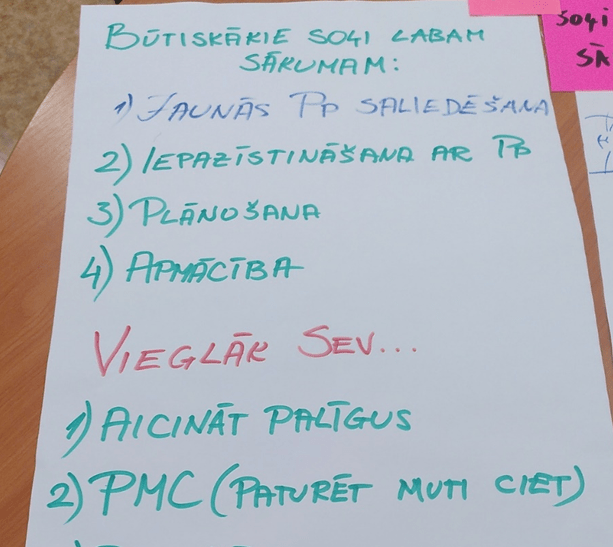 BŪTISKĀKIE SOĻI LABAM
SĀKUMAM:
1) JAUNĀS PP SALIEDĒŠANA
2) IEPAZĪSTINĀŠANA AR PP
3) PLĀNOŠANA
4) APMĀCĪBA
VIEGLĀK SEV...
1) AICINĀT PALĪGUS
2) PMC (PATURĒT MUTI CIET)
SOĻI
SĀ